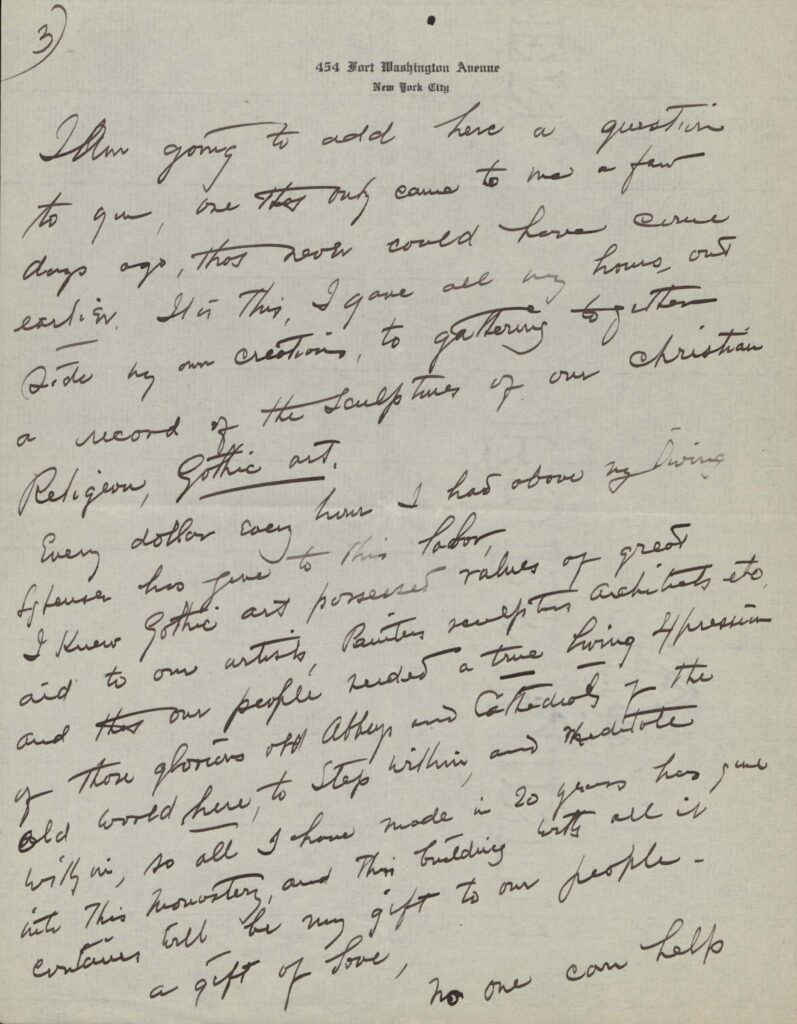 3
454 Fort Washington Avenue
New York City
I Am going to add here a question
to you, one that only came to me a few
days ago, that never could have come
earlier. It is this, I gave all my hours, out
side my own creations, to gathering together
a record of the sculptures of our Christian
Religeon, Gothic art.
Every dollar every hour I had above my living
Expenses has gone to this labor,
I Knew Gothic art possessed values of great
aid to our artists, Painters sculptors architects etc.
and that our people needed a true living Expression
of those glorious old Abbeys and Cathedrals of the
old world here, to step within, and meditate
within, so all I have made in 20 years has gone
into this Monastery, and this building with all it
contains will be my gift to our people -
a gift of love,
No one can help